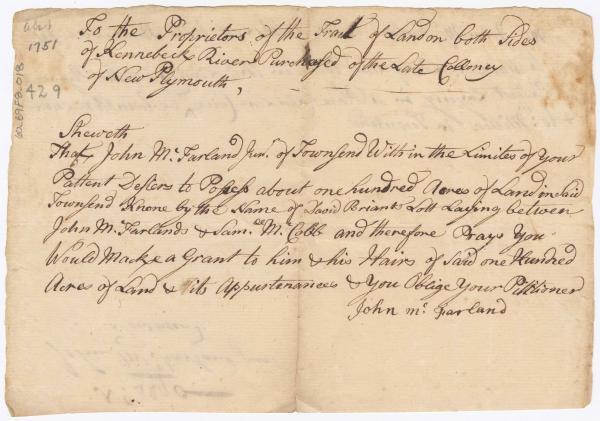 To the Proprietors of the Tract of Land on both Sides
of Kennebeck River Purchased of the Late Colloney
of New Plymouth,
1751
429
Sheweth
That John Mc. Farland Junr. of Townsend Within the Limites of your
Pattent Desiers to Posess about one hundred Acres of Land on said
Townsend Knone by the Name of David Briants Lott Laying between
John Mc Farlands & Saml. Mc. Cobb and therefore Prays You
Would Macke a Grant to him & his Hairs of said one Hundred
Acres of Land & its Appurtenances & You Oblige Your Pittioner
John mc. Farland